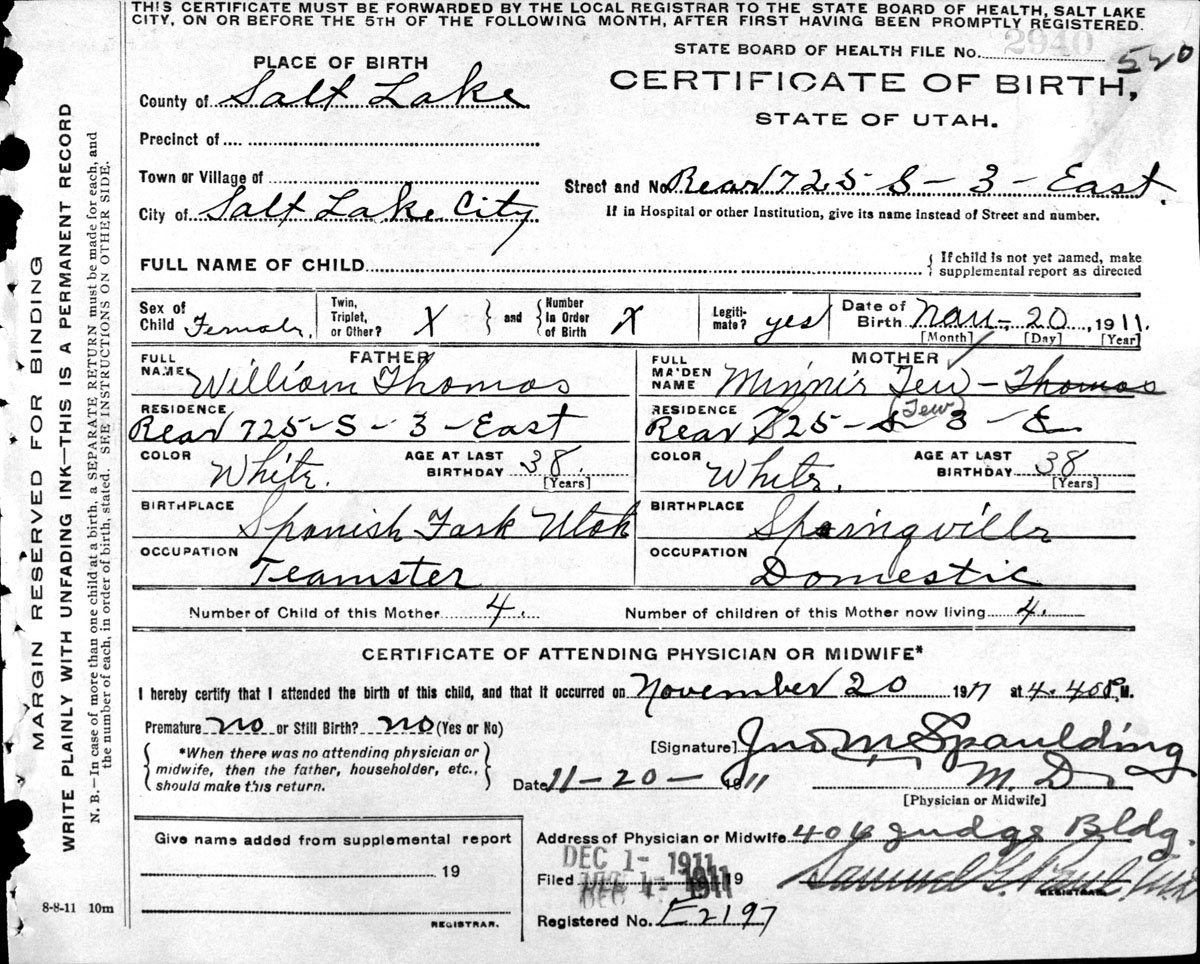 THIS CERTIFICATE MUST BE FORWARDED BY THE LOCAL REGISTRAR TO THE STATE BOARD OF HEALTH, SALT LAKE
CITY, ON OR BEFORE THE 5TH OF THE FOLLOWING MONTH, AFTER FIRST HAVING BEEN PROMPTLY REGISTERED.
MARGIN RESERVED FOR BINDING
WRITE PLAINLY WITH UNFADING INK—THIS IS A PERMANENT RECORD
N. B.—In case of more than one child at a birth, a SEPARATE RETURN must be made for each, and
the number of each, in order of birth, stated. SEE INSTRUCTIONS ON OTHER SIDE.
STATE BOARD OF HEALTH FILE No. 2940 520
PLACE OF BIRTH
CERTIFICATE OF BIRTH,
STATE OF UTAH.
County of Salt Lake
Precinct of
Town or Village of
Street and No. Rear 725 S-3-East.
City of Salt Lake City
If in Hospital or other Institution, give its name instead of Street and number.
FULL NAME OF CHILD
{ If child is not yet named, make
supplemental report as directed
Sex of Child Female, Twin, Triplet, or Other? X } and { Number in Order of Birth X Legitimate? yes Date of Birth Nov-, 20, 1911.
[Month] [Day] [Year]
FATHER
FULL NAME William Thomas
RESIDENCE
Rear 725-S-3-East
COLOR White. AGE AT LAST BIRTHDAY 38. [Years]
BIRTHPLACE
Spanish Fork Utah
OCCUPATION
Teamster
MOTHER
FULL MAIDEN NAME Minnie Tew - Thomas
(Tew)
RESIDENCE
Rear 725-S-3-E
COLOR White, AGE AT LAST BIRTHDAY 38 [Years]
BIRTHPLACE
Springville
OCCUPATION
Domestic
Number of Child of this Mother 4. Number of children of this Mother now living 4.
CERTIFICATE OF ATTENDING PHYSICIAN OR MIDWIFE*
I hereby certify that I attended the birth of this child, and that it occurred on November 20 1911 at 4.40 P.M.
Premature no or Still Birth? no (Yes or No)
{ *When there was no attending physician or
midwife, then the father, householder, etc.,
should make this return. }
[Signature] Jno M Spaulding
M.D.
[Physician or Midwife]
Date 11-20-1911
Give name added from supplemental report
19
REGISTRAR.
8-8-11 10m
Address of Physician or Midwife 406 Judge Bldg.
DEC 1- 1911
Filed DEC 1- 1911 19
Samuel G. Paul M.D.
REGISTRAR
Registered No. E2197